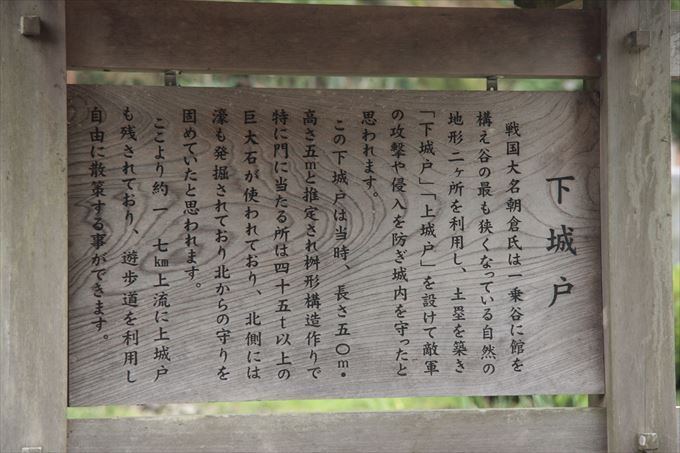 下城戸
戦国大名朝倉氏は一乗谷に館を
構え谷の最も狭くなっている自然の
地形二ヶ所を利用し、土塁を築き
「下城戸」「上城戸」を設けて敵軍
の攻撃や侵入を防ぎ城内を守ったと
思われます。
この下城戸は当時、長さ五〇m・
高さ五mと推定され桝形構造作りで
特に門に当たる所は四十五t以上の
巨大石が使われており、北側には
濠も発掘されており北からの守りを
固めていたと思われます。
ここより約一 七㎞上流に上城戸
も残されており、遊歩道を利用し
自由に散策する事ができます。